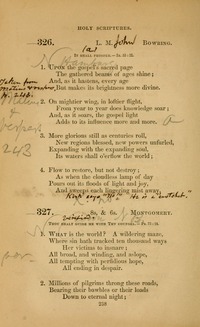 HOLY SCRIPTURES.
326. L. M. John BOWRING.
IT SHALL PROSPER.—Is. 55:11.
1. UPON the gospel's sacred page
The gathered beams of ages shine;
And, as it hastens, every age
But makes its brightness more divine.
2. On mightier wing, in loftier flight,
From year to year does knowledge soar;
And, as it soars, the gospel light
Adds to its influence more and more.
3. More glorious still as centuries roll,
New regions blessed, new powers unfurled,
Expanding with the expanding soul,
Its waters shall o'erflow the world;
4. Flow to restore, but not destroy;
As when the cloudless lamp of day
Pours out its floods of light and joy,
And sweeps each lingering mist away.
327. 8s, & 6s. J. MONTGOMERY.
THOU SHALT GUIDE ME WITH THY COUNSEL.
1. WHAT is the world? A wildering maze,
Where sin hath tracked ten thousand ways
Her victims to insnare;
All broad, and winding, and aslope,
All tempting with perfidious hope,
All ending in despair.
2. Millions of pilgrims throng these roads,
Bearing their bawbles or their loads
Down to eternal night;
238